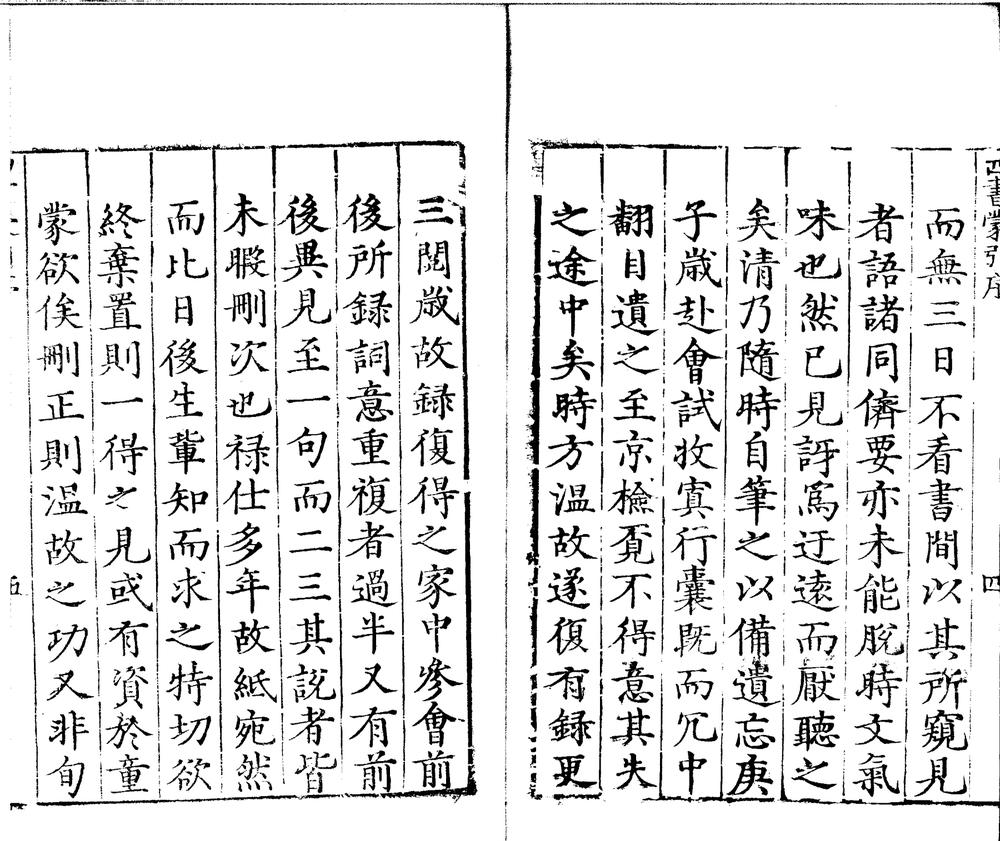 四書蒙引序
四
而無三日不看書間以其所窺見
者語諸同儕要亦未能脫時文氣
味也然已見訝為迂逺而厭聽之
矣清乃隨時自筆之以備遺忘庚
子歲赴會試收寘行囊既而冗中
翻目遺之至京檢覔不得意其失
之途中矣時方溫故遂復有録更
三閱歲故録復得之家中參會前
後所録詞意重複者過半又有前
後異見至一句而二三其說者皆
未暇刪次也禄仕多年故紙宛然
而比日後生軰知而求之特切欲
終棄置則一得之見或有資於童
蒙欲俟刪正則溫故之功又非旬
五